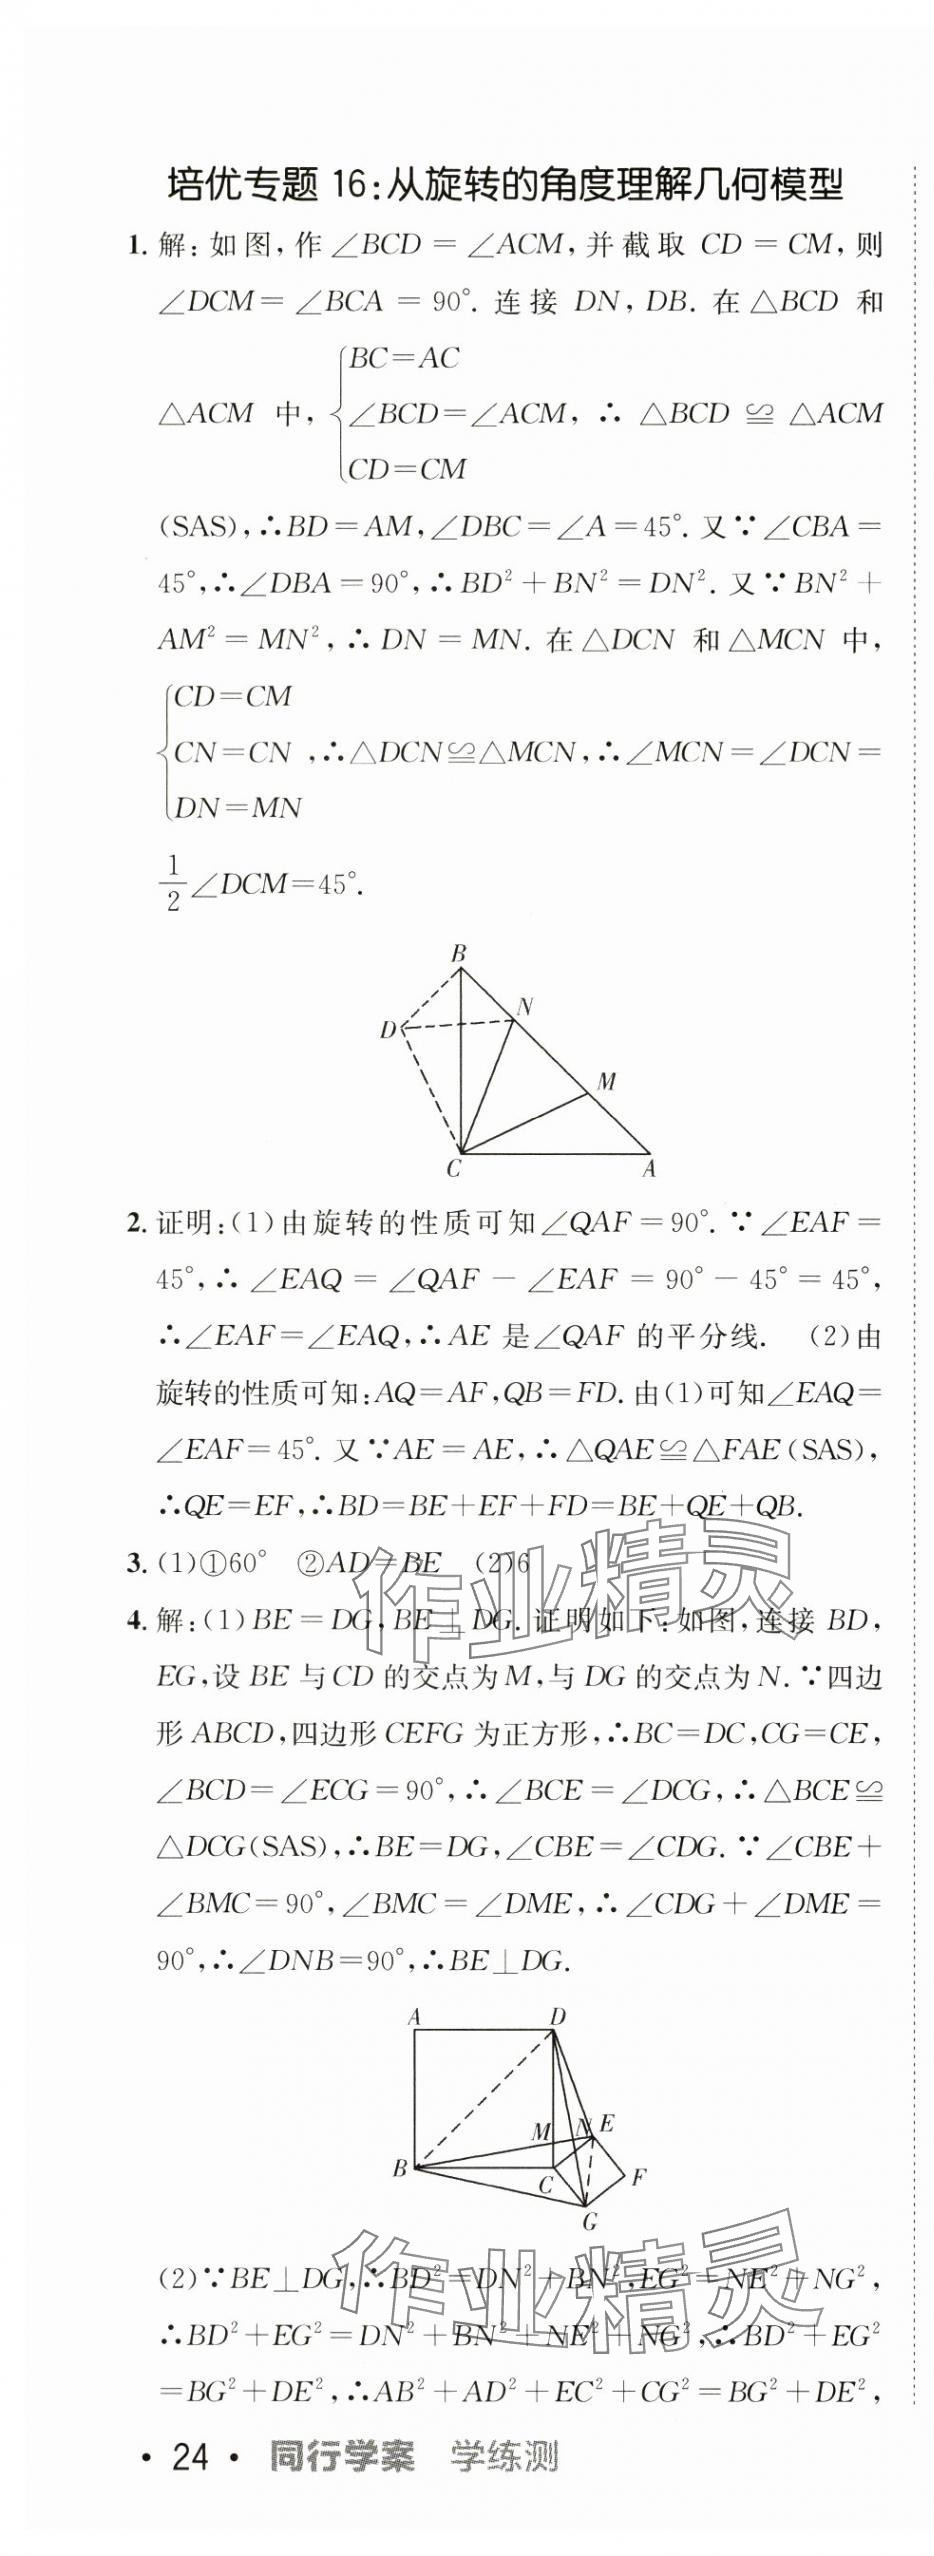 培优专题 16:从旋转的角度理解几何模型
1. 解:如图,作∠BCD=∠ACM,并截取 CD=CM,则
∠DCM=∠BCA=90°. 连接 DN,DB. 在△BCD 和
BC=AC
△ACM 中, ∠BCD=∠ACM, ∴△BCD≌△ACM
CD=CM
(SAS),∴BD=AM,∠DBC=∠A=45°. 又∵∠CBA=
45°,∴∠DBA=90°,∴BD²+BN²=DN². 又∵BN²+
AM²=MN²,∴DN=MN. 在△DCN 和△MCN 中,
CD=CM
CN=CN ,∴△DCN≌△MCN,∴∠MCN=∠DCN=
DN=MN
1/2∠DCM=45°.
B
N
D
M
C
A
2. 证明:(1)由旋转的性质可知∠QAF=90°. ∵∠EAF=
45°,∴∠EAQ=∠QAF-∠EAF=90°-45°=45°,
∴∠EAF=∠EAQ,∴AE 是∠QAF 的平分线. (2)由
旋转的性质可知:AQ=AF,QB=FD. 由(1)可知∠EAQ=
∠EAF=45°. 又∵AE=AE,∴△QAE≌△FAE(SAS),
∴QE=EF,∴BD=BE+EF+FD=BE+QE+QB.
3. (1)①60° ②AD=BE (2)6
4. 解:(1)BE=DG,BE⊥DG. 证明如下:如图,连接 BD,
EG,设 BE 与 CD 的交点为 M,与 DG 的交点为 N. ∵四边
形 ABCD,四边形 CEFG 为正方形,∴BC=DC,CG=CE,
∠BCD=∠ECG=90°,∴∠BCE=∠DCG,∴△BCE≌
△DCG(SAS),∴BE=DG,∠CBE=∠CDG. ∵∠CBE+
∠BMC=90°,∠BMC=∠DME,∴∠CDG+∠DME=
90°,∴∠DNB=90°,∴BE⊥DG.
A
D
M
N
E
B
C
F
G
(2)∵BE⊥DG,∴BD²=DN²+BN²,EG²=NE²+NG²,
∴BD²+EG²=DN²+BN²+NE²+NG²,∴BD²+EG²
=BG²+DE²,∴AB²+AD²+EC²+CG²=BG²+DE²,
· 24 · 同行学案 学练测
作业精灵
作业精灵